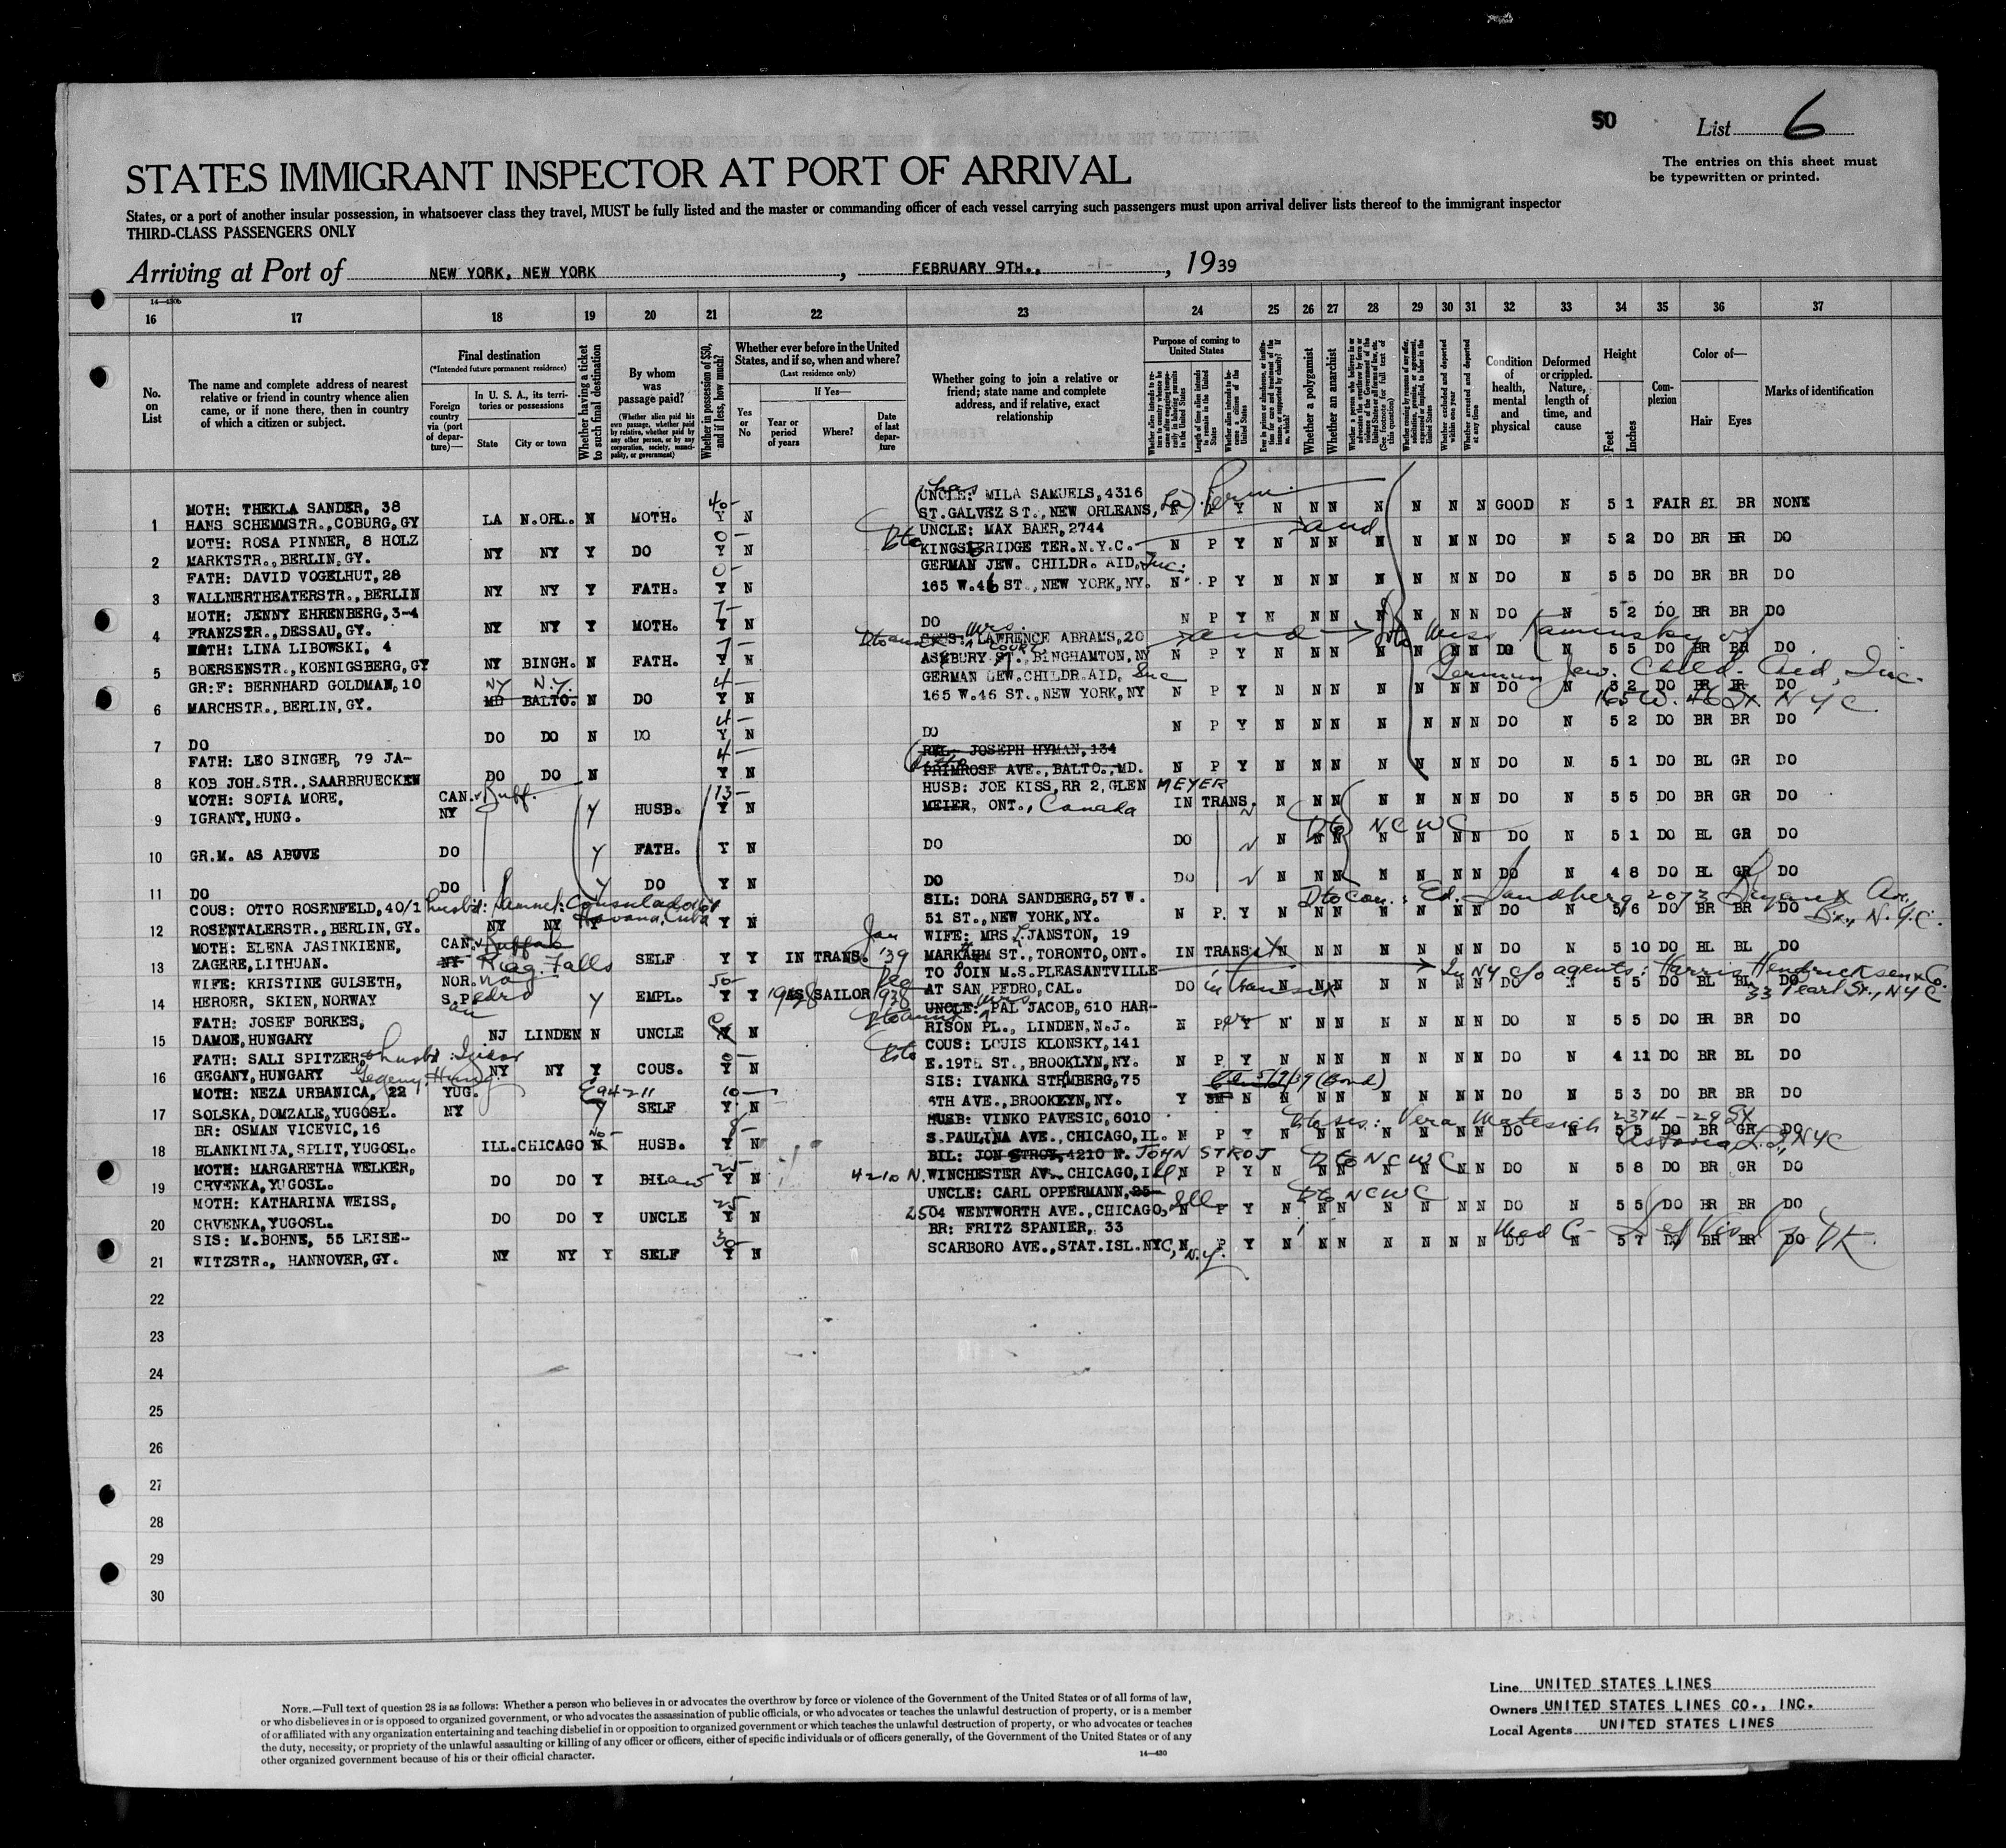 50
List 6
The entries on this sheet must
be typewritten or printed.
STATES IMMIGRANT INSPECTOR AT PORT OF ARRIVAL
States, or a port of another insular possession, in whatsoever class they travel, MUST be fully listed and the master or commanding officer of each vessel carrying such passengers must upon arrival deliver lists thereof to the immigrant inspector
THIRD-CLASS PASSENGERS ONLY
Arriving at Port of NEW YORK, NEW YORK, FEBRUARY 9TH., -1-, 1939
14—430b
16 17 18 19 20 21 22 23 24 25 26 27 28 29 30 31 32 33 34 35 36 37
No. on List
The name and complete address of nearest relative or friend in country whence alien came, or if none there, then in country of which a citizen or subject.
Final destination
(*Intended future permanent residence)
Foreign country via (port of departure)—
In U. S. A., its territories or possessions
State
City or town
Whether having a ticket to such final destination
By whom was passage paid?
(Whether alien paid his own passage, whether paid by relative, whether paid by any other person, or by any corporation, society, municipality, or government)
Whether in possession of $50, and if less, how much?
Whether ever before in the United States, and if so, when and where?
(Last residence only)
Yes or No
If Yes—
Year or period of years
Where?
Date of last departure
Whether going to join a relative or friend; state name and complete address, and if relative, exact relationship
Purpose of coming to United States
Whether a polygamist
Whether an anarchist
Condition of health, mental and physical
Deformed or crippled. Nature, length of time, and cause
Height
Feet
Inches
Complexion
Color of—
Hair
Eyes
Marks of identification
MOTH: THEKLA SANDER, 38 UNCLE: MILA SAMUELS, 4316
1 HANS SCHEMMSTR., COBURG, GY LA N.ORL. N MOTH. 40- Y N ST.GALVEZ ST., NEW ORLEANS, La. Y N N N N N N N GOOD N 5 1 FAIR BL BR NONE
MOTH: ROSA PINNER, 8 HOLZ UNCLE: MAX BAER, 2744
2 MARKTSTR., BERLIN, GY. NY NY Y DO 0- Y N KINGSBRIDGE TER. N.Y.C. N P Y N N N N N N N DO N 5 2 DO BR BR DO
FATH: DAVID VOGELHUT, 28 GERMAN JEW. CHILDR. AID, Inc.
3 WALLNERTHEATERSTR., BERLIN NY NY Y FATH. 0- Y N 165 W.46 ST., NEW YORK, NY. N P Y N N N N N N N DO N 5 5 DO BR BR DO
MOTH: JENNY EHRENBERG, 3-4
4 FRANZSTR., DESSAU, GY. NY NY Y MOTH. 7- Y N DO N P Y N N N N N N N DO N 5 2 DO BR BR DO
MOTH: LINA LIBOWSKI, 4 Mrs. LAWRENCE ABRAMS, 20 and Miss Kaminsky of
5 BOERSENSTR., KOENIGSBERG, GY NY BINGH. N FATH. 7- Y N ASKBURY ST., COURT BINGHAMTON, NY N P Y N N N N N N N DO N 5 5 DO BR BR DO
German Jew. Child. Aid, Inc.
165 W. 46 St. N Y C.
GR:F: BERNHARD GOLDMAN, 10 NY N.Y. GERMAN JEW. CHILDR. AID, Inc
6 MARCHSTR., BERLIN, GY. MD BALTO. N DO 4- Y N 165 W.46 ST., NEW YORK, NY N P Y N N N N N N N DO N 5 2 DO BR BR DO
7 DO DO DO N DO 4- Y N DO N P Y N N N N N N N DO N 5 2 DO BR BR DO
FATH: LEO SINGER, 79 JA- REL: JOSEPH HYMAN, 134
8 KOB JOH.STR., SAARBRUECKEN DO DO N 4- Y N PRIMROSE AVE., BALTO., MD. N P Y N N N N N N N DO N 5 1 DO BL GR DO
MOTH: SOFIA MORE, CAN. v Buff. HUSB: JOE KISS, RR 2, GLEN MEYER
9 IGRANY, HUNG. NY Y HUSB. 13- Y N MEIER, ONT., Canada IN TRANS. N N N N N N N N DO N 5 5 DO BR GR DO
Dto NCWC
10 GR.M. AS ABOVE DO Y FATH. Y N DO DO N N N N N N N N DO N 5 1 DO BL GR DO
11 DO DO Y DO Y N DO DO N N N N N N N N DO N 4 8 DO BL GR DO
COUS: OTTO ROSENFELD, 40/1 SIL: DORA SANDBERG, 57 W. Ed. Sandberg 2073 Bryant Av.,
12 ROSENTALERSTR., BERLIN, GY. NY NY Y Havana, Cuba Y N 51 ST., NEW YORK, NY. N P. Y N N N N N N N DO N 5 6 DO BR BR DO Bx., N.Y.C.
MOTH: ELENA JASINKIENE, CAN. v Buffalo WIFE: MRS L. JANSTON, 19
13 ZAGERE, LITHUAN. NY Niag. Falls SELF Y Y IN TRANS. Jan '39 MARKAHM ST., TORONTO, ONT. IN TRANSIT N N N N N N N DO N 5 10 DO BL BL DO
WIFE: KRISTINE GULSETH, NOR. TO JOIN M.S. PLEASANTVILLE In NY c/o agents: Harris Hendricksen & Co.
14 HEROER, SKIEN, NORWAY S. Pedro Y EMPL. 50- Y Y 1938 AS SAILOR Dec 1938 AT SAN PEDRO, CAL. DO in transit N N N N N N N DO N 5 5 DO BL BL DO 33 Pearl St., NYC
FATH: JOSEF BORKES, UNCLE: Mrs PAL JACOB, 610 HAR-
15 DAMOE, HUNGARY NJ LINDEN N UNCLE N RISON PL., LINDEN, N.J. N P Y N N N N N N N DO N 5 5 DO BR BR DO
FATH: SALI SPITZER, COUS: LOUIS KLONSKY, 141
16 GEGANY, HUNGARY NY NY Y COUS. 0- Y N E.19TH ST., BROOKLYN, NY. N P Y N N N N N N N DO N 4 11 DO BR BL DO
MOTH: NEZA URBANICA, 22 YUG. SIS: IVANKA STRMBERG, 75 5/9/39 (Bond)
17 SOLSKA, DOMZALE, YUGOSL. NY Y SELF 10- Y N 4TH AVE., BROOKLYN, NY. Y N N N N N N N N DO N 5 3 DO BR BR DO
BR: OSMAN VICEVIC, 16 HUSB: VINKO PAVESIC, 6010 Vera Matesich 2374 - 29 St
18 BLANKINIJA, SPLIT, YUGOSL. ILL. CHICAGO N HUSB. 8- Y N S.PAULINA AVE., CHICAGO, IL. N P Y N N N N N N N DO N 5 5 DO BR GR DO Astoria, L.I., NYC
MOTH: MARGARETHA WELKER, BIL: JON STROY, 4210 N. JOHN STROJ Dto NCWC
19 CRVENKA, YUGOSL. DO DO Y BIL 25- Y N 4210 N. WINCHESTER AV. CHICAGO, Ill. N P Y N N N N N N N DO N 5 8 DO BR GR DO
MOTH: KATHARINA WEISS, UNCLE: CARL OPPERMANN, 25 Dto NCWC
20 CRVENKA, YUGOSL. DO DO Y UNCLE 25 Y N 2504 WENTWORTH AVE., CHICAGO, Ill N P Y N N N N N N N DO N 5 5 DO BR BR DO
SIS: M.BOHNE, 55 LEISE- BR: FRITZ SPANIER, 33
21 WITZSTR., HANNOVER, GY. NY NY Y SELF 30- Y N SCARBORO AVE., STAT.ISL.NYC, N.Y. N P Y N N N N N N N DO N 5 7 DO BR BR DO
22
23
24
25
26
27
28
29
30
NOTE.—Full text of question 28 is as follows: Whether a person who believes in or advocates the overthrow by force or violence of the Government of the United States or of all forms of law,
or who disbelieves in or is opposed to organized government, or who advocates the assassination of public officials, or who advocates or teaches the unlawful destruction of property, or is a member
of or affiliated with any organization entertaining and teaching disbelief in or opposition to organized government or which teaches the unlawful destruction of property, or who advocates or teaches
the duty, necessity, or propriety of the unlawful assaulting or killing of any officer or officers, either of specific individuals or of officers generally, of the Government of the United States or of any
other organized government because of his or their official character.
14—430
Line UNITED STATES LINES
Owners UNITED STATES LINES CO., INC.
Local Agents UNITED STATES LINES